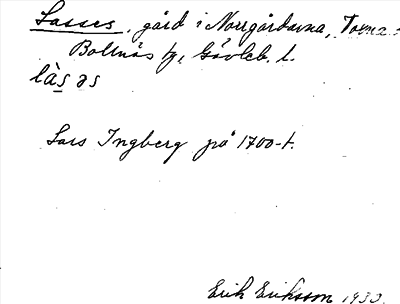 Lasses, gård i Norrgårdarna,
Bollnäs sn, Gävleb. l.
làs əs
Lars Ingberg på 1700-t.
Erik Eriksson 1930.